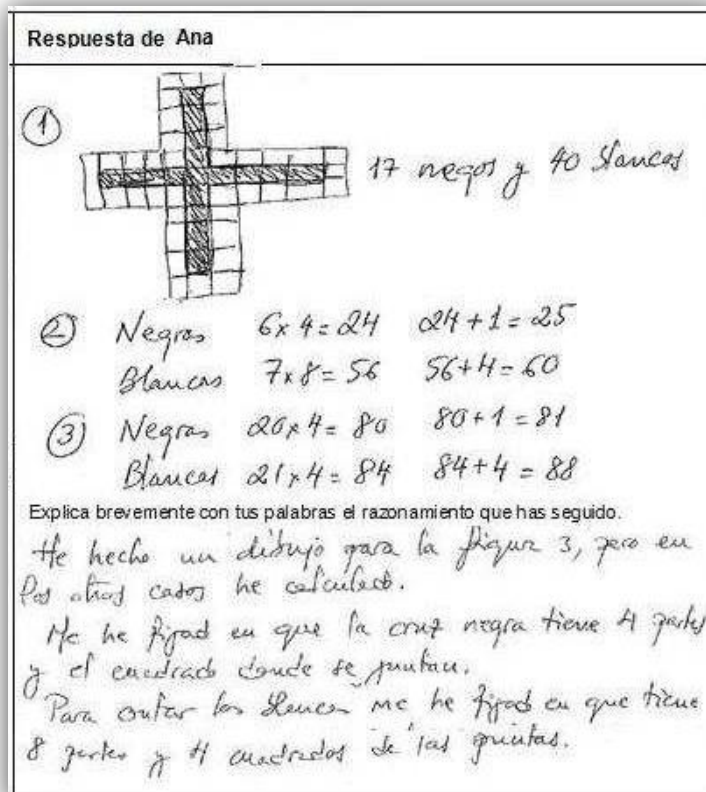 Respuesta de Ana
① 17 negos y 40 blancos
② Negras 6x4=24 24+1=25
Blancas 7x8=56 56+4=60
③ Negras 20x4=80 80+1=81
Blancas 21x4=84 84+4=88
Explica brevemente con tus palabras el razonamiento que has seguido.
He hecho un dibujo para la figura 3, pero en
los otros casos he calculado.
Me he fijad en que la cruz negra tiene 4 partes
y el cuadrado donde se juntan.
Para contar los blancos me he fijad en que tiene
8 partes y 4 cuadrados de las puntas.